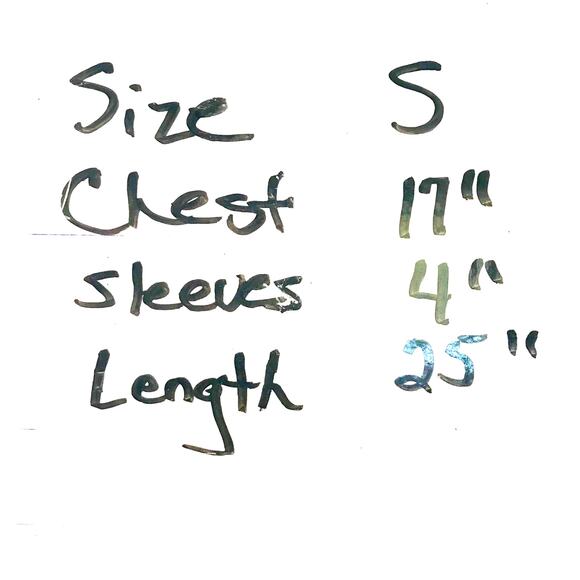 Size S
Chest 17"
Sleeves 4"
Length 25"